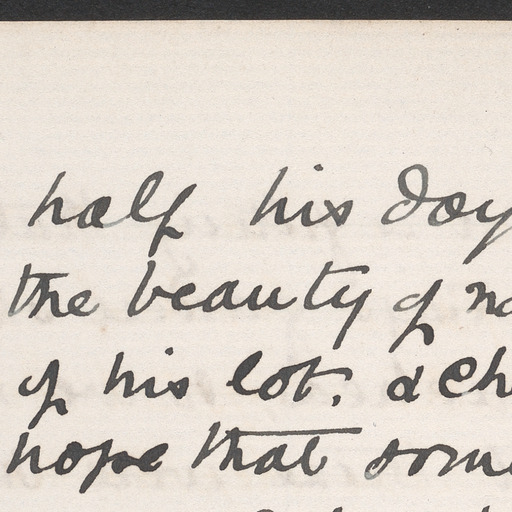 half his day
the beauty of na
of his lot. & ch
hope that some